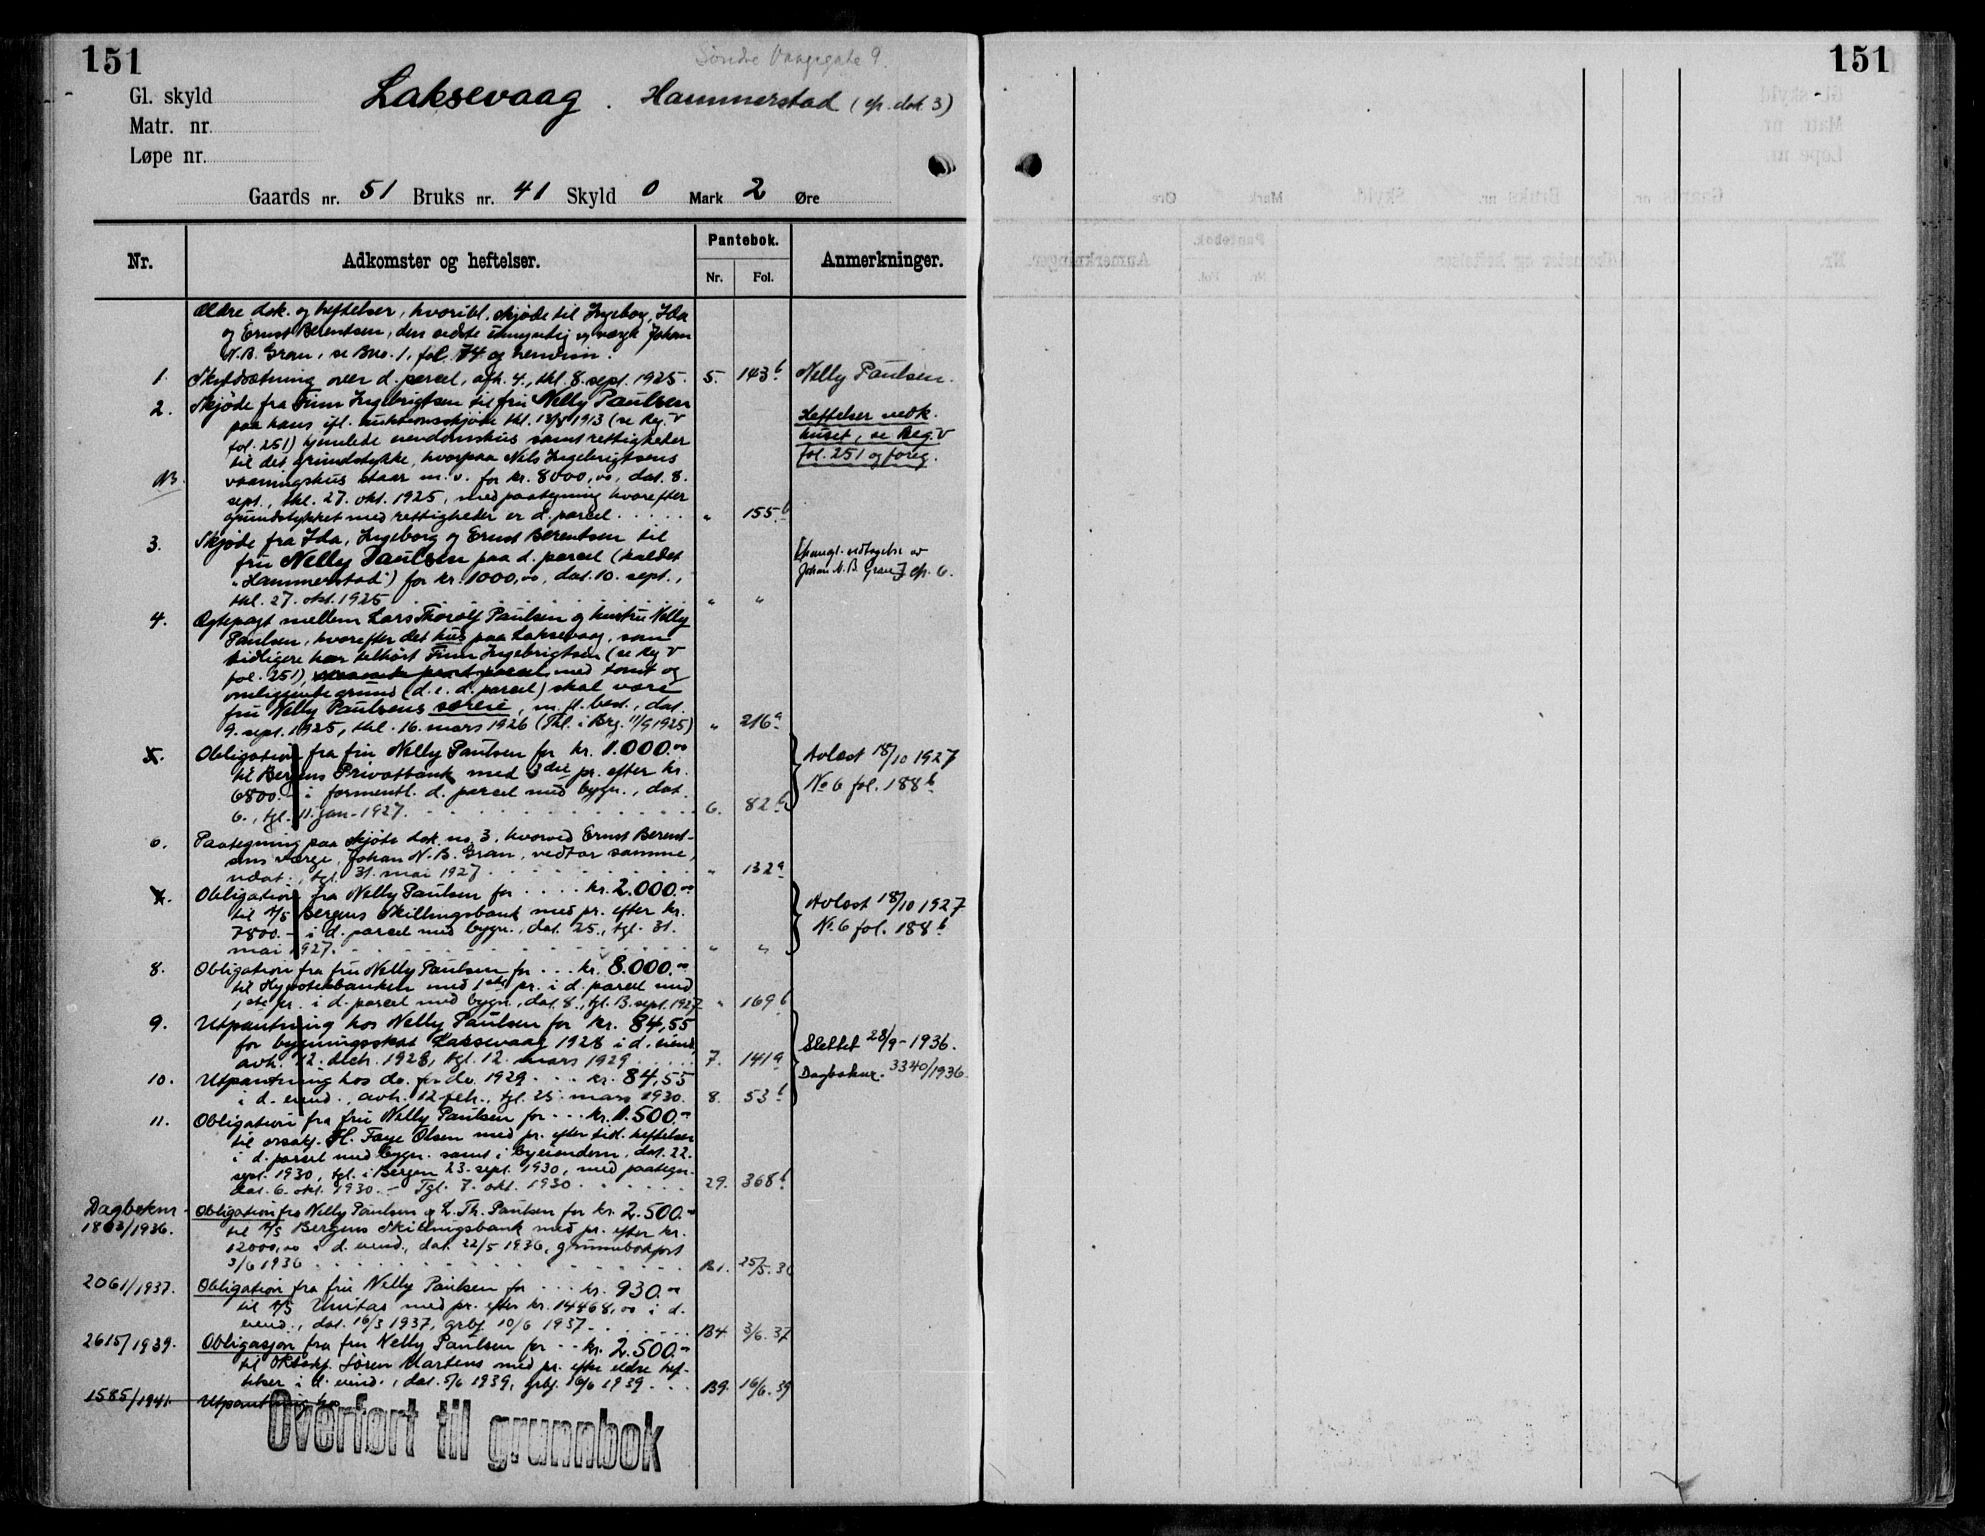 151
Søndre Vaagegate 9.
Gl. skyld
Laksevaag. Hammerstad (cfr. dok. 3)
Matr. nr.
Løpe nr.
Gaards nr. 51 Bruks nr. 41 Skyld 0 Mark 2 Øre
Nr. Adkomster og heftelser. Pantebok. Anmerkninger.
Nr. Fol.
Ældre dok. og heftelser, hvoribl. skjøde til Ingeborg, Ida
og Ernst Berentsen, den sidste umyndig og værge Johan
N. B. Gran, se Bno. 1, fol. 74 og henvisn.
1. Skyldsætning over d. parcel, afh. 4., thl. 8. sept. 1925. 5. 143b Nelly Paulsen.
2. Skjøde fra Finn Ingebrigtsen til fru Nelly Paulsen
paa hans ifl. auktionsskjøde thl. 13/8 1913 (se Reg. V
fol. 251) hjemlede eiendomshus samt rettigheder
til det grundstykke, hvorpaa Nils Ingebrigtsens
NB. vaaningshus staar m. v. for kr. 8000,00, dat. 8.
sept., thl. 27. okt. 1925, med paategning hvorefter
grundstykket med rettigheder er d. parcel . . . . . " 155b
Heftelser vedk.
huset, se Reg. V
fol. 251 og foreg.
3. Skjøde fra Ida, Ingeborg og Ernst Berentsen til
fru Nelly Paulsen paa d. parcel (kaldet
"Hammerstad") for kr. 1000,00, dat. 10. sept.,
thl. 27. okt. 1925 . . . . . " "
[mangl. vedtagelse av
Johan N. B. Gran] cfr. 6.
4. Egtepagt mellem Lars Thorolf Paulsen og hustru Nelly
Paulsen, hvorefter det hus paa Laksevaag, som
tidligere har tilhørt Finn Ingebrigtsen (se Reg V
fol. 251), med tomt og
omliggende grund (d. e. d. parcel) skal være
fru Nelly Paulsens særeie, m. fl. best., dat.
9. sept. 1925, thl. 16. mars 1926 (Thl. i Brg. 11/9 1925) " 216a
5. Obligation fra fru Nelly Paulsen for kr. 1.000.00
til Bergens Privatbank med 3die pr. efter kr.
6800.- i formentl. d. parcel med bygn., dat.
6., tgl. 11. jan. 1927. . . . . 6. 82b
Avløst 18/10 1927
No 6 fol. 188b
6. Paategning paa skjøte dok. no. 3. hvorved Ernst Berent-
sens værge, Johan N. B. Gran, vedtar samme,
udat., tgl. 31. mai 1927 . . . . . " 132a
7. Obligation fra Nelly Paulsen for . . . . kr. 2.000.00
til A/S Bergens Skillingsbank med pr. efter kr.
7800.- i d. parcel med bygn., dat. 25., tgl. 31.
mai 1927. . . . . " "
Avløst 18/10 1927
No. 6 fol. 188b
8. Obligation fra fru Nelly Paulsen for . . . kr. 8.000.00
til Hypotekbanken med 1ste pr. i d. parcel med
1ste pr. i d. parcel med bygn., dat. 8., tgl. 13. sept. 1927 " 169b
9. Utpantning hos Nelly Paulsen for kr. 84,55
for bygningsskat Laksevaag 1928 i d. eiend.,
avh. 12. decb. 1928, tgl. 12. mars 1929 . . . . 7. 141a
Slettet 28/9-1936.
Dagboknr. 3340/1936.
10. Utpantning hos do. for do. 1929 . . . kr. 84,55
i d. eiend., avh. 12 feb., tgl. 25. mars 1930. 8. 53b
11. Obligation fra fru Nelly Paulsen for . . . kr. 1.500.00
til orsakf. H. Faye Olsen med pr. efter tid. heftelser
i d. parcel med bygn. samt i byeiendom, dat. 22.
sept. 1930, tgl. i Bergen 23. sept. 1930, med paategn.
dat. 6. okt. 1930. - Tgl. 7. okt. 1930 . . . . . 29. 368b
Dagboknr. Obligation fra Nelly Paulsen og L. Th. Paulsen for kr. 2.500.-
1863/1936. til A/S Bergens Skillingsbank med pr. efter kr.
12000,00 i d. eiend., dat. 22/5 1936, grunnbokført
3/6 1936 . . . . . B1. 25/5. 36
2061/1937. Obligation fra fru Nelly Paulsen for . . . kr. 930.-
til A/S Unitas med pr. efter kr. 14468,00 i d.
eiend., dat. 16/3 1937, grbf. 10/6 1937. . . . . B4. 3/6. 37
2615/1939. Obligasjon fra fru Nelly Paulsen for . . kr. 2.500.-
til Søren Martens med pr. efter eldre hef-
telser i d. eiend., dat. 5/6 1939, grbf. 16/6 1939. . . B9. 16/6. 39
1585/1941 Utpantning hos
Overført til grunnbok
151